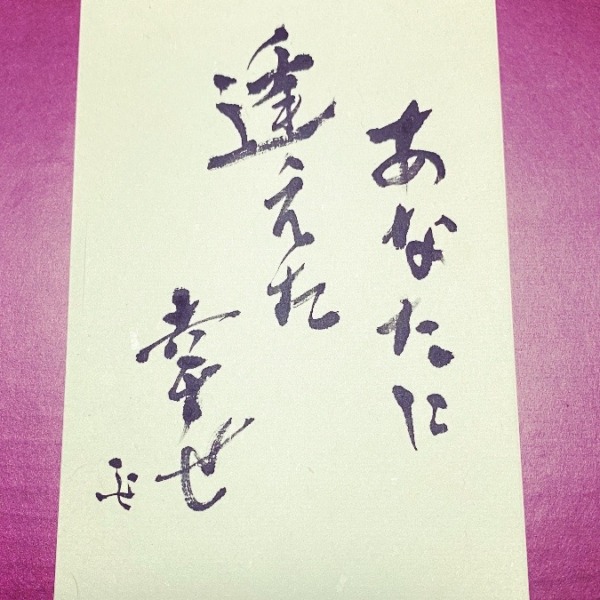 あなたに
逢えた
幸せ